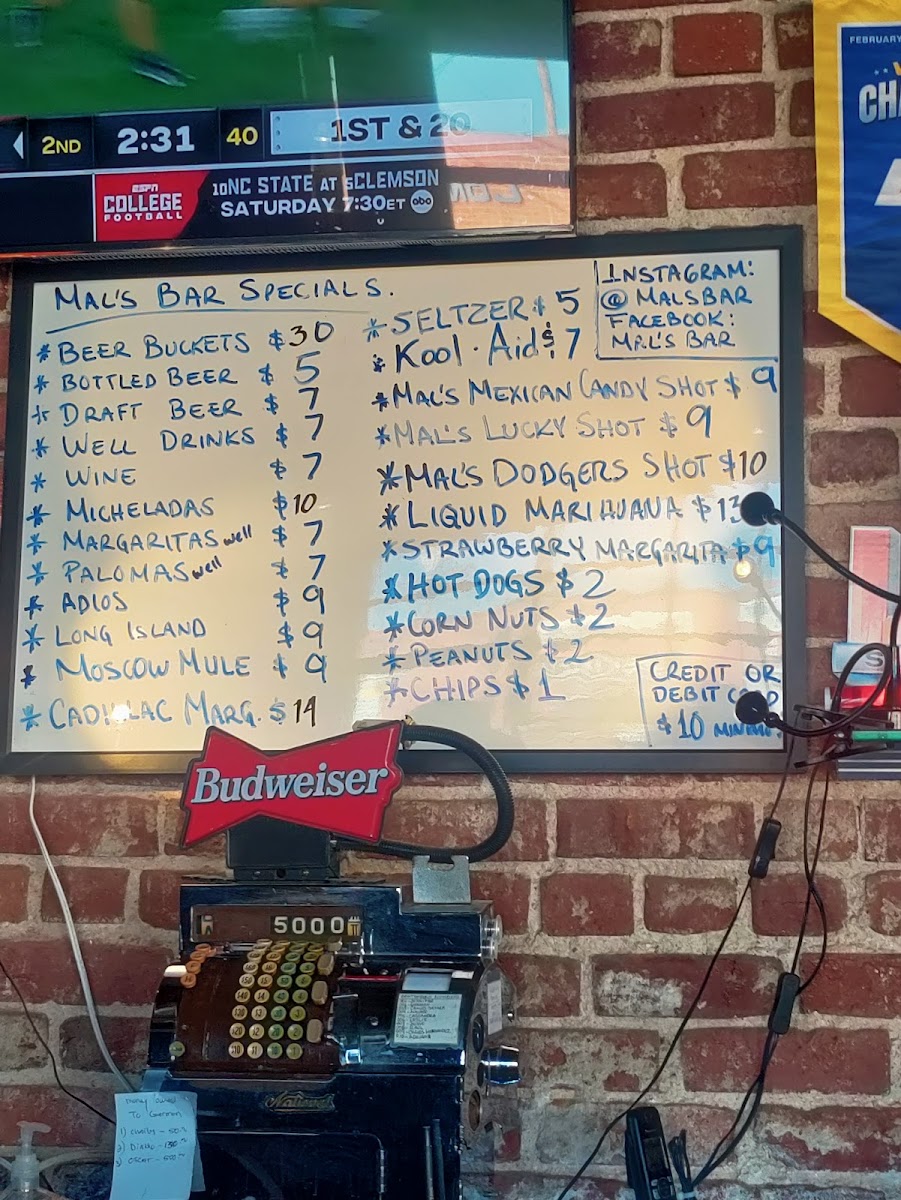 2ND 2:31 40 1ST & 20
ESPN COLLEGE FOOTBALL
10 NC STATE AT 5 CLEMSON
SATURDAY 7:30 ET abc
FEBRUARY
CHA
MAL'S BAR SPECIALS.
* BEER BUCKETS $30
* BOTTLED BEER $ 5
* DRAFT BEER $ 7
* WELL DRINKS $ 7
* WINE $ 7
* MICHELADAS $10
* MARGARITAS well $ 7
* PALOMAS well $ 7
* ADIOS $ 9
* LONG ISLAND $ 9
* MOSCOW MULE $ 9
* CADILLAC MARG. $ 14
* SELTZER $ 5
* KOOL-AID $ 7
* MAL'S MEXICAN CANDY SHOT $ 9
* MAL'S LUCKY SHOT $ 9
* MAL'S DODGERS SHOT $10
* LIQUID MARIHUANA $ 13
* STRAWBERRY MARGARITA $ 9
* HOT DOGS $ 2
* CORN NUTS $ 2
* PEANUTS $ 2
* CHIPS $ 1
INSTAGRAM:
@ MALSBAR
FACEBOOK:
MAL'S BAR
CREDIT OR
DEBIT
$10
Budweiser
5000
National
To